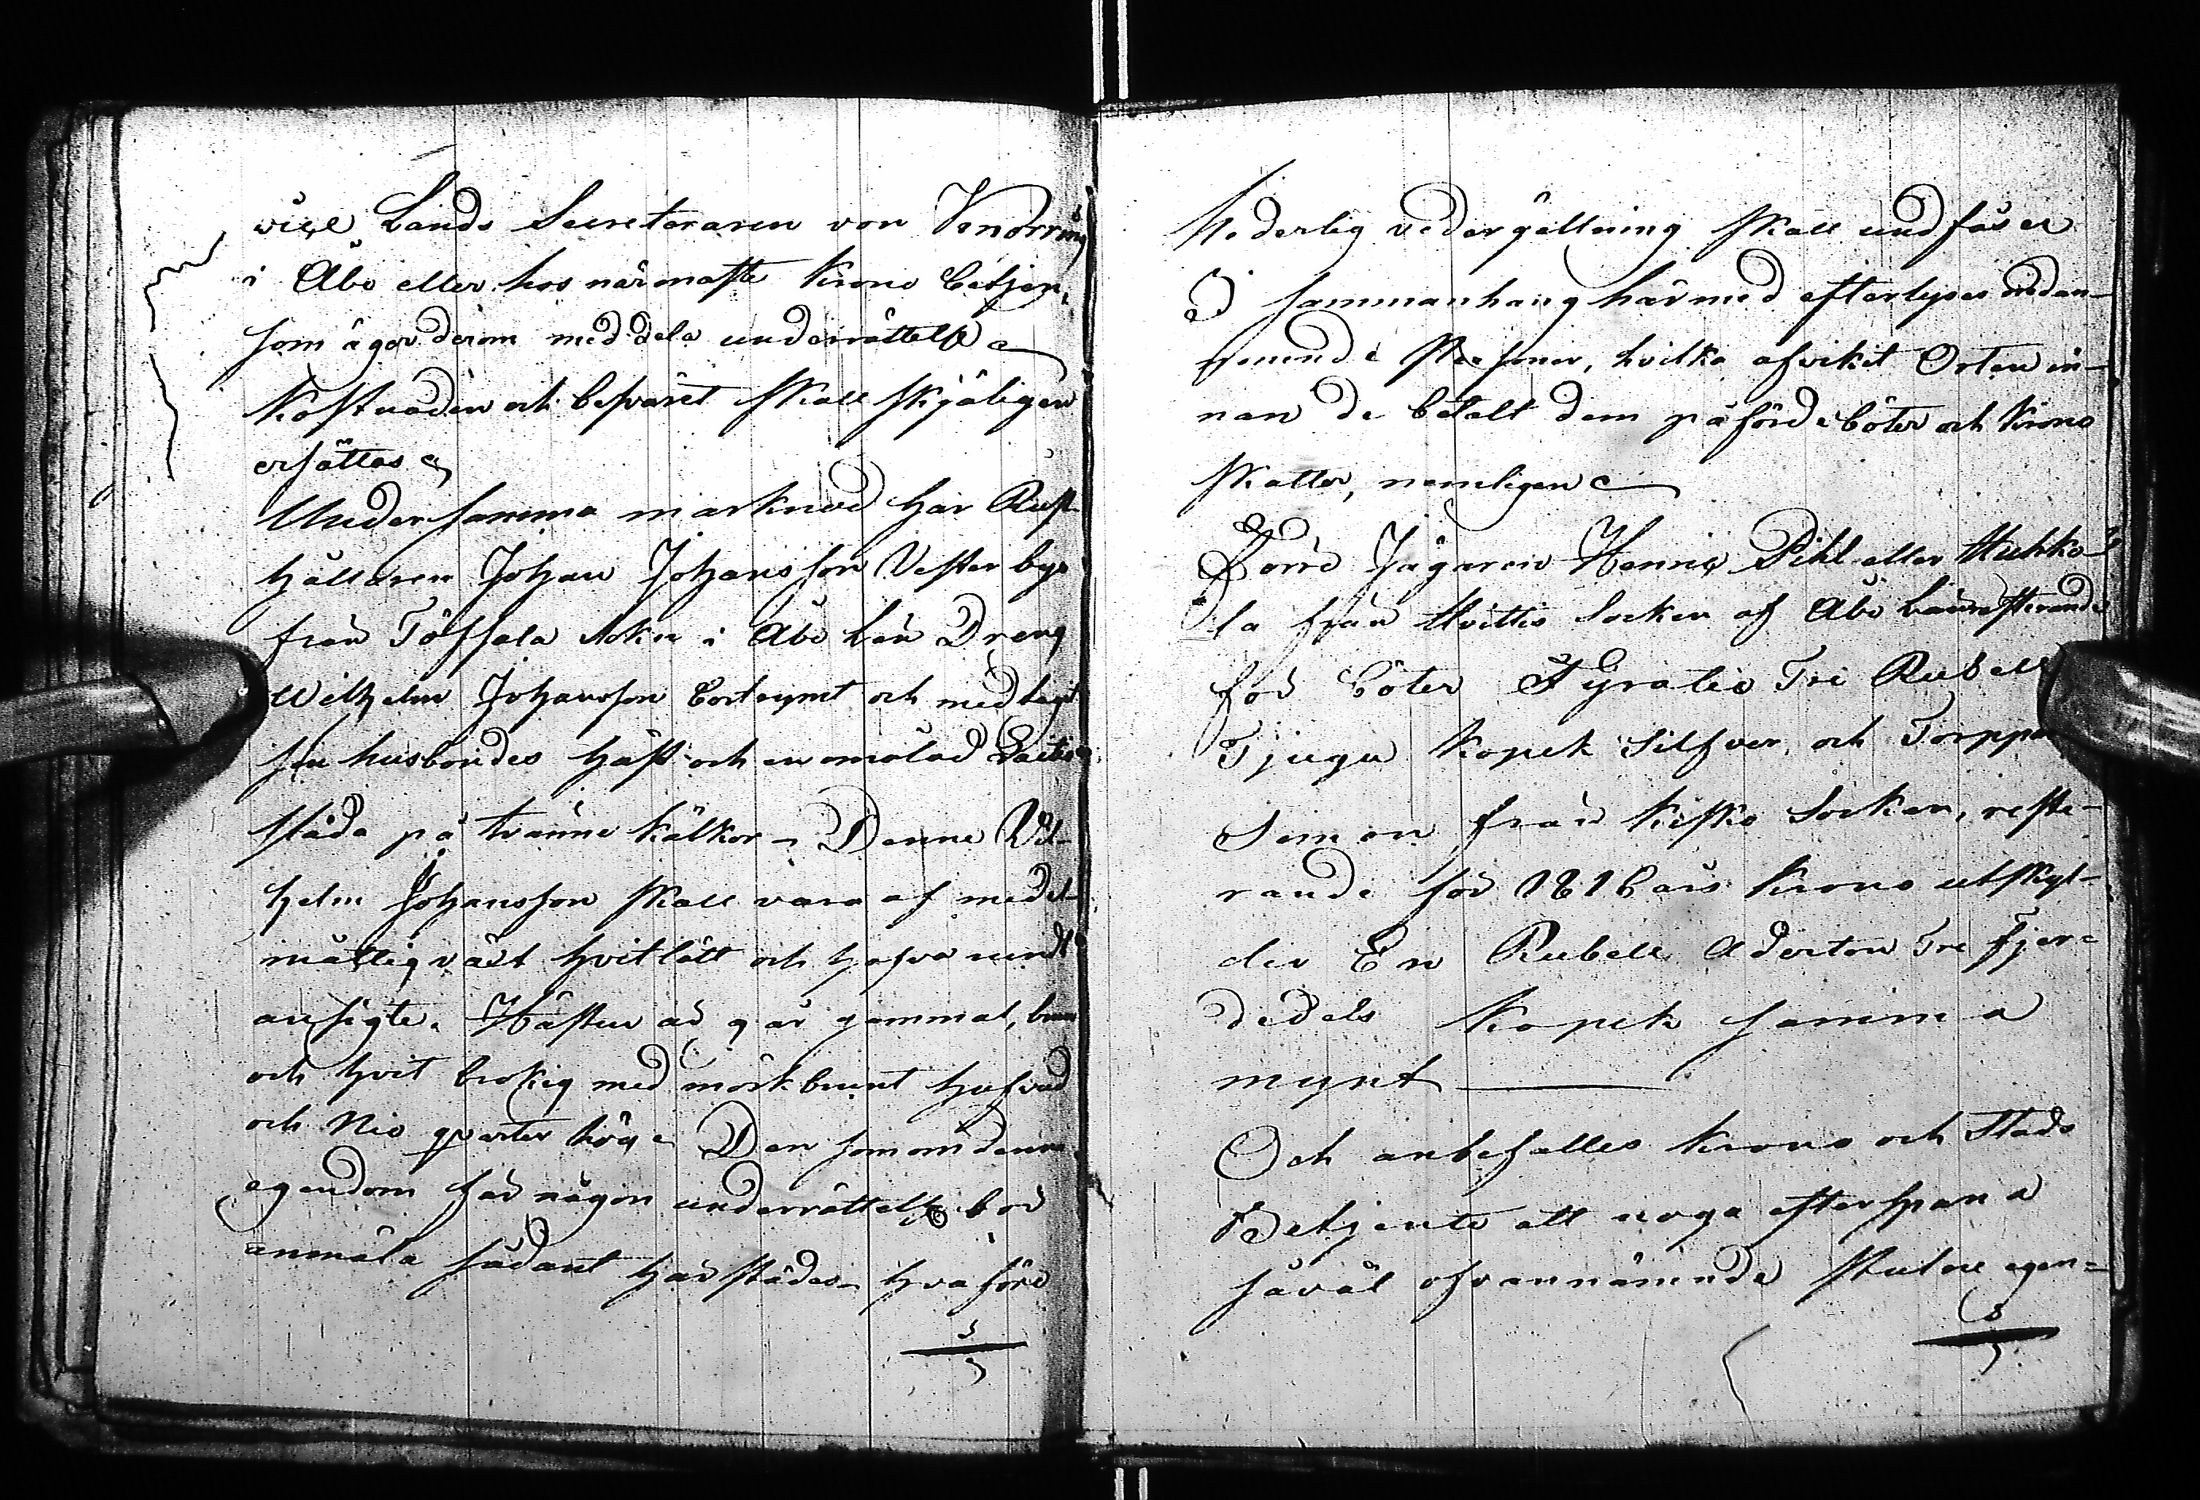 vice Lands Secreteraren von Knorring
i Åbo eller hos närmaste Krono betjen,
som äger derom meddela underrättelse
Kostnaden och besväret skall skjäligen
ersättas
Under samma marknad har Rust-
hållaren Johan Johansson Vesterbys
från Töfsala Sokn i Åbo Län Dreng
Wilhelm Johansson bortrymt och medtagit
sin husbondes häst och en omålad
släda på tvänne kälkor Denne Vil-
helm Johansson skall vara af medel-
måttig växt hvitlätt och hafva rundt
ansigte. Hästen är 9 år gammal, brun
och hvit brokig med mörkbrunt hufvud
och Nio qvarter hög Den som om denne
egendom får någon underrättelse bör
anmäla sådant härstädes hvaföre
hederlig vedergällning skall undfås
I sammanhang härmed efterlyses nedan-
nemnde Personer, hvilka afvikit Orten in-
nan de betalt dem påförde böter och Krono
skatter, nemligen
Förre Jägaren Henric Pihl eller Huhka-
la från Hvittis Socken af Åbo Län resterande
för böter Fyratio Tre Rubel
Tjugu Kopek Silfver, och Torppa
Simon från Kisko Socken, reste-
rande för 1818 års Krono utskyl-
der En Rubell Aderton Tre Fjer-
dedels Kopek samma
mynt
Och anbefalles Krono och Stads
Betjente att noga efterspana
såväl ofvannämnde stulne egen-